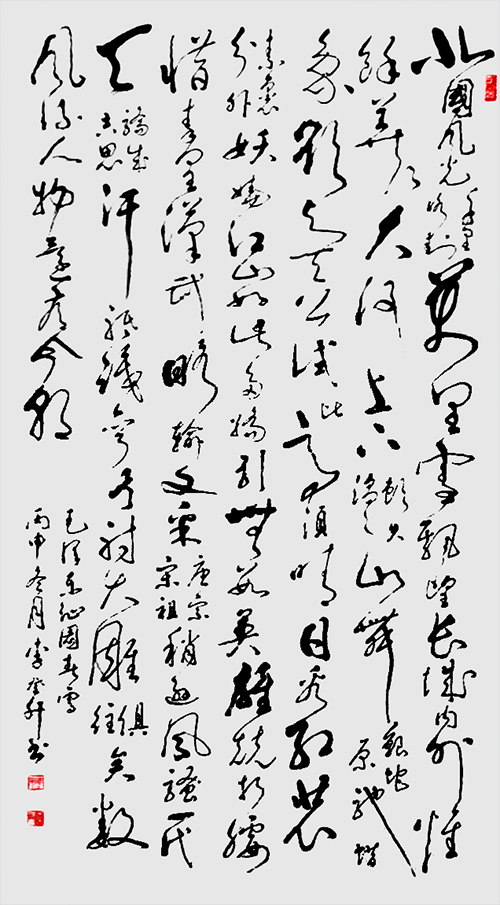 北國风光千里冰封萬里雪飘望长城内外惟
餘莽莽大河上下顿失滔滔山舞銀蛇原驰蜡
象欲与天公试比高须晴日看红装
素裹分外妖娆江山如此多娇引無数英雄競折腰
惜秦皇漢武略输文采唐宗宋祖稍逊风骚一代
天骄成吉思汗祇識弯弓射大雕俱往矣数
风流人物還看今朝
毛泽东沁园春雪
丙申冬月李书